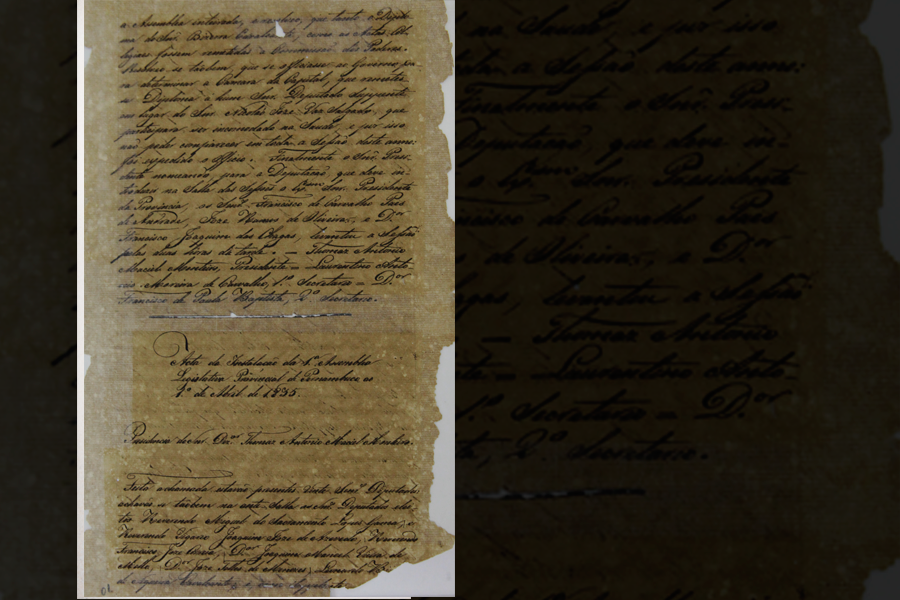 a Assembléa inteirada, e resolveo, que tanto o Diplo-
ma do Snr. Bezerra Cavalcante, como as Actas Col-
legiaes fossem remettidas á Commissão dos Poderes.
Resolveo-se tambem, que se officiasse ao Governo pa-
ra determinar a Camara da Capital, que remetta
o Diploma a hum Snr. Deputado Supplente
em lugar do Snr. Joze Vaz Salgado, que
participára ser incommodado na Saude, e por isso
não poder comparecer em toda a Sessão deste anno:
foi expedido o Officio. Finalmente o Snr. Presi-
dente nomeando para a Deputação, que deve in-
troduzir na Salla das Sessões o Snr. Presidente
da Provincia, os Snrs. Francisco de Carvalho Paes
de Andrade, Joze de Oliveira, e D.or
Francisco Joaquim das Chagas, levantou a Sessão
pelas duas horas da tarde. — Thomaz Antonio
Maciel Monteiro, Presidente — Laurentino Anto-
nio Moreira de Carvalho, 1.º Secretario — D.or
Francisco de Paula Baptista, 2.º Secretario.
Acta da Installação da Assembléa
Legislativa Provincial de Pernambuco ao
1.º de Abril de 1835.
Presidencia do Snr. Dez.or Thomaz Antonio Maciel Monteiro.
Feita a chamada estavão presentes Snrs. Deputados,
e tambem na Salla os Snrs. Deputados elei-
tos Reverendo Miguel do Sacramento Lopes Gama, o
Reverendo Vigario Joaquim Joze de Azevedo, Reverendo
Francisco Joze Correia, D.or Joaquim Manoel Vieira de
Mello, D.or Joze Telles de Menezes, Leonardo